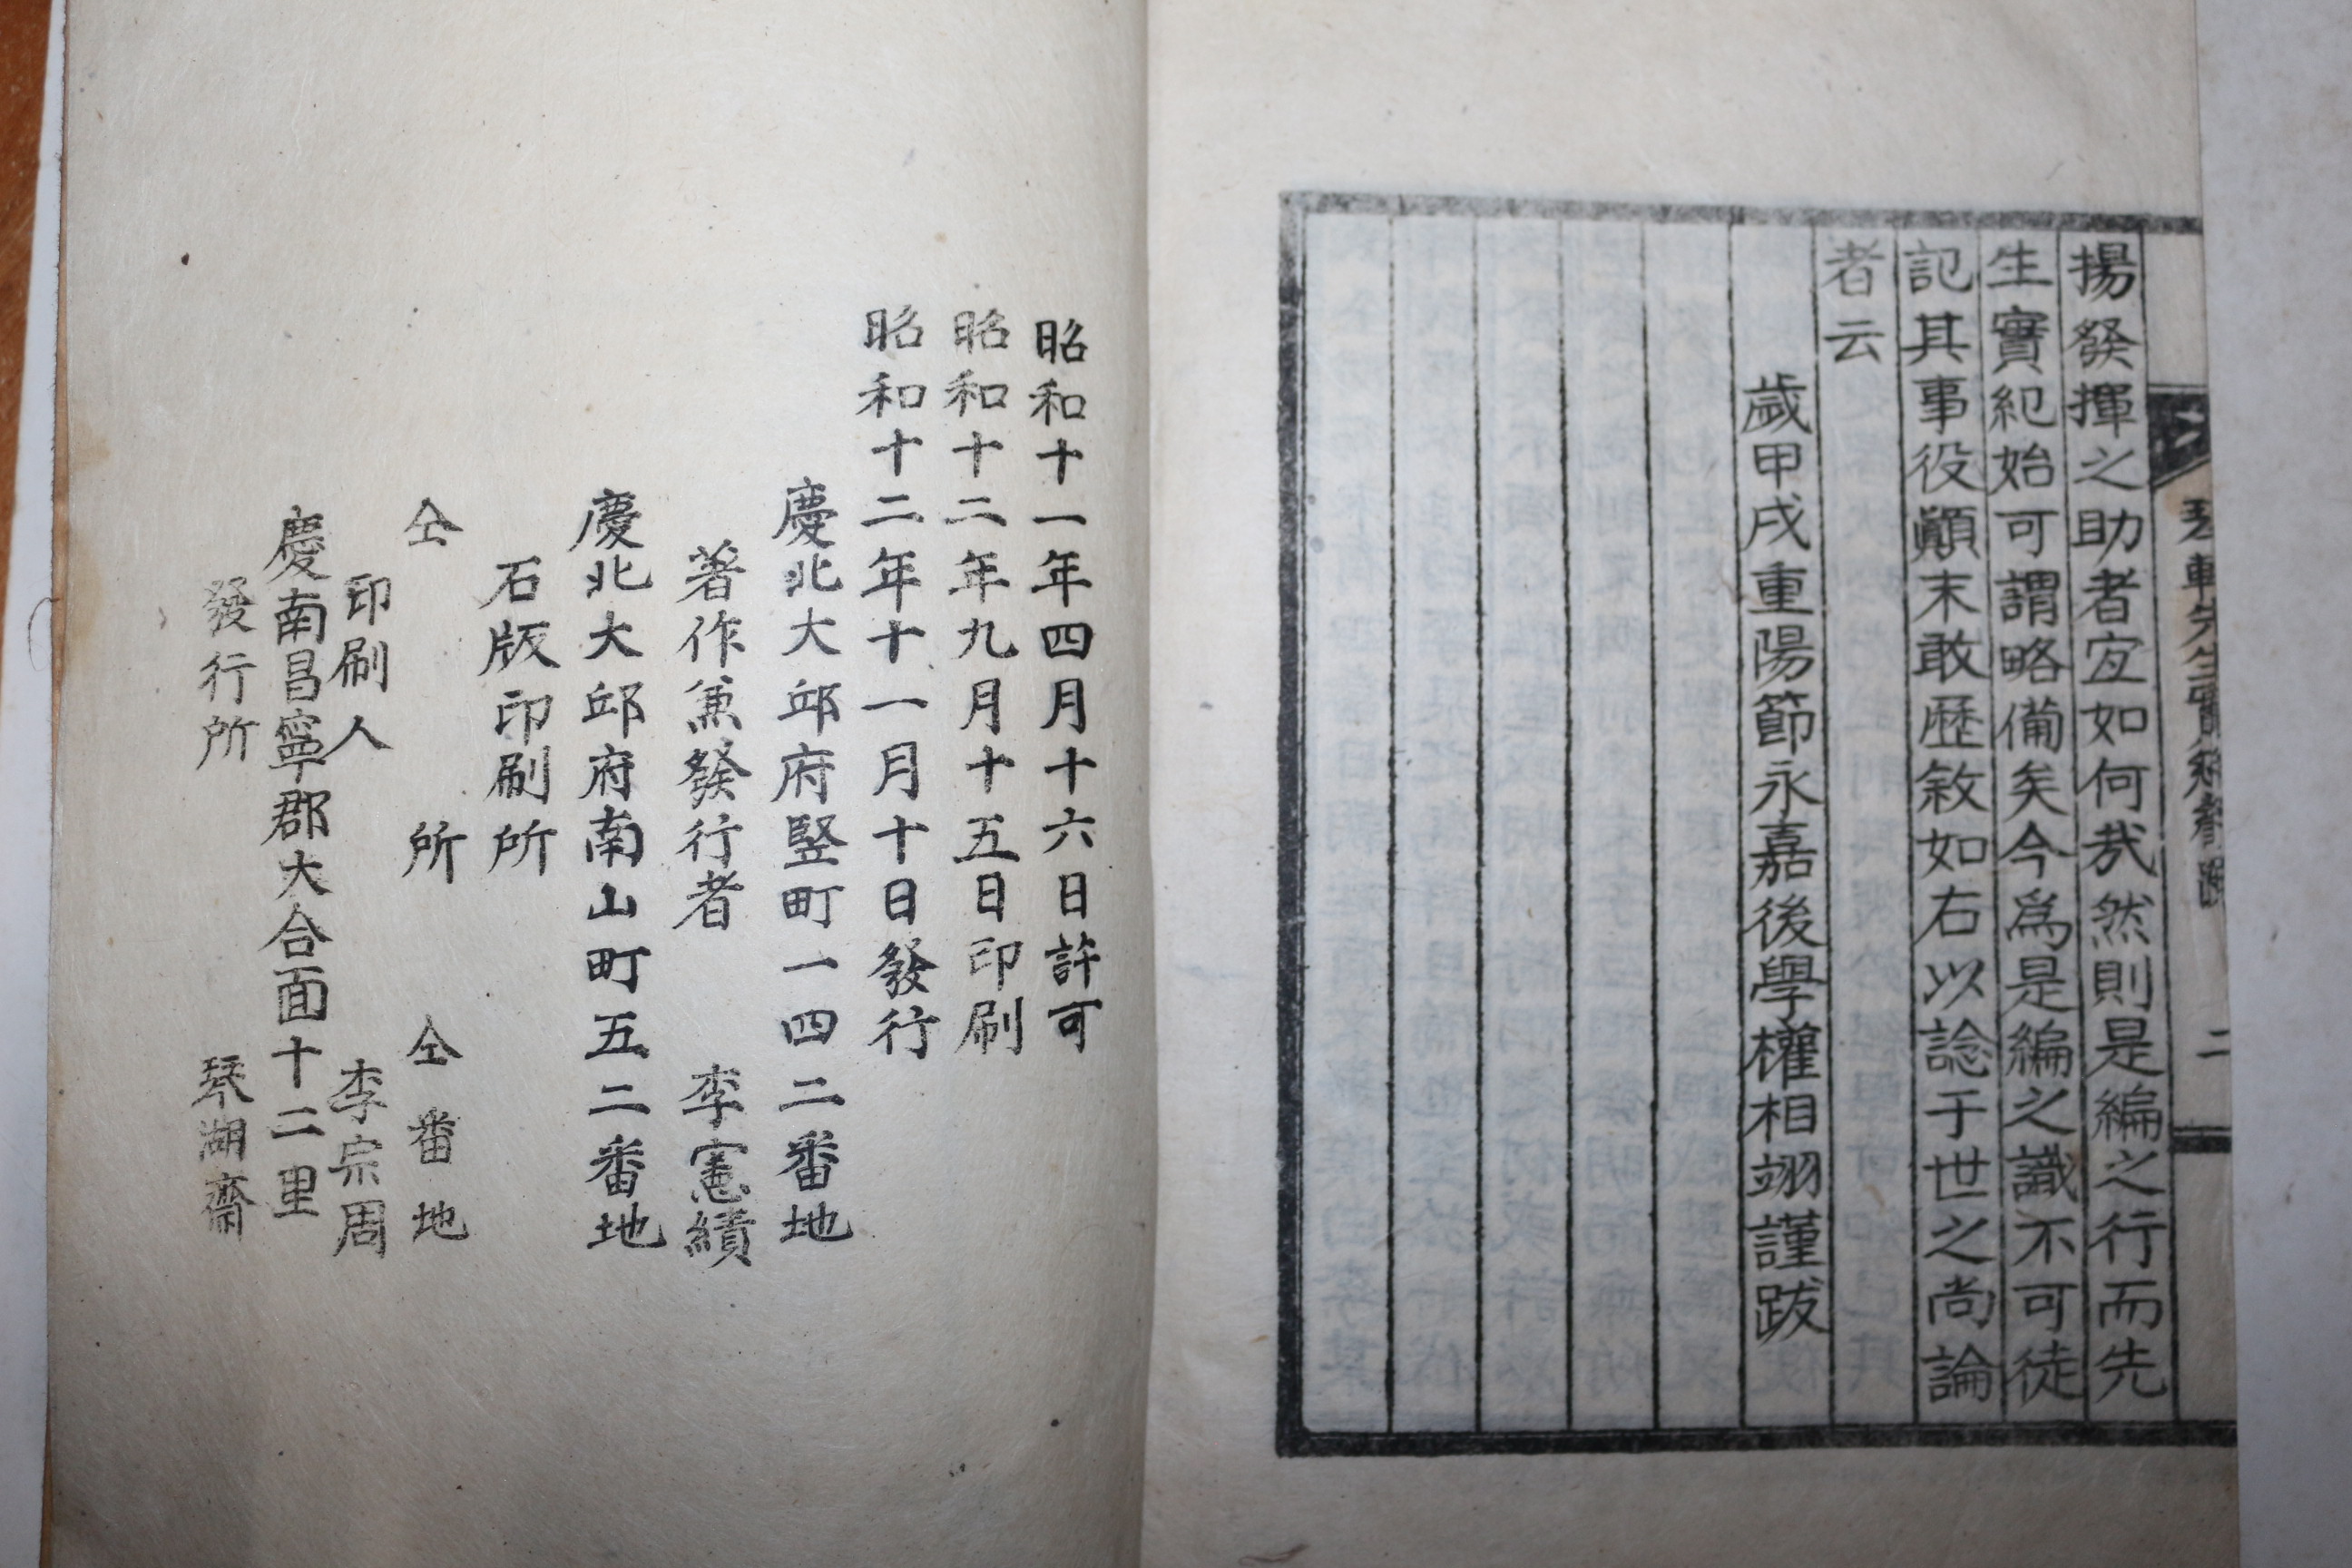 琴軒先生實紀 跋
二
揚發揮之助者宜如何哉然則是編之行而先
生實紀始可謂略備矣今爲是編之識不可徒
記其事役顚末敢歷敘如右以諗于世之尚論
者云
歲甲戌重陽節永嘉後學權相翊謹跋
昭和十一年四月十六日許可
昭和十二年九月十五日印刷
昭和十二年十一月十日發行
慶北大邱府竪町一四二番地
著作兼發行者 李憲績
慶北大邱府南山町五二番地
石版印刷所
仝 所 仝番地
印刷人 李宗周
慶南昌寧郡大合面十二里
發行所 琴湖齋